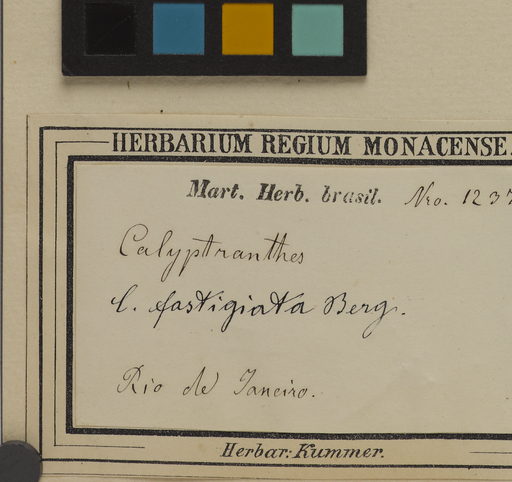 HERBARIUM REGIUM MONACENSE.
Mart. Herb. brasil. Nro. 1237
Calyptranthes
C. fastigiata Berg.
Rio de Janeiro.
Herbar: Kummer.